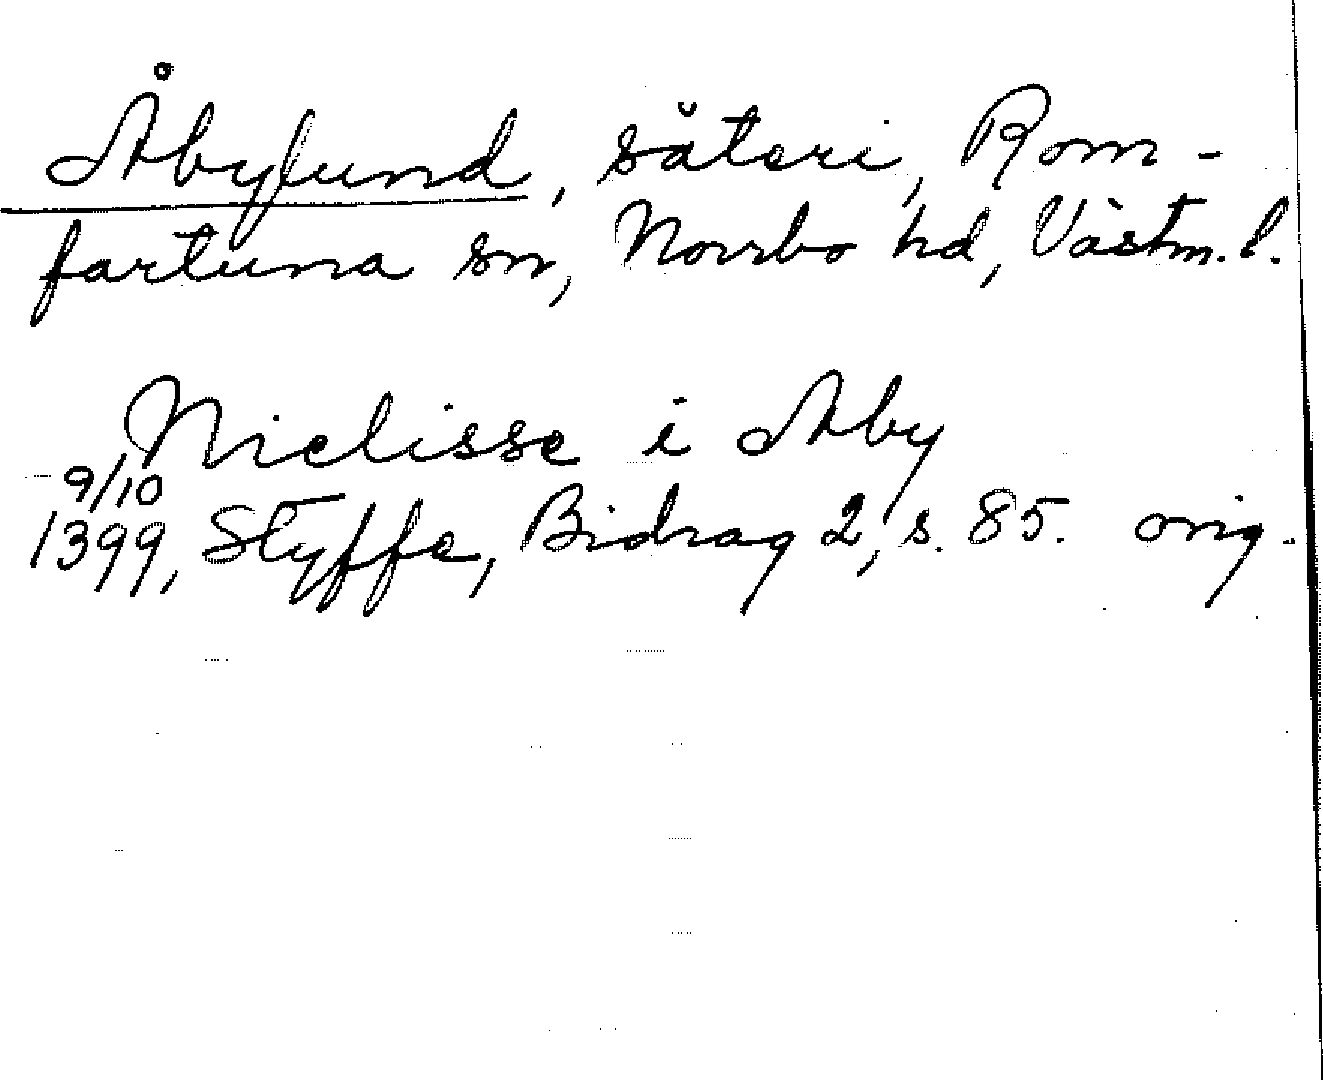 Åbylund, säteri, Rom-
fartuna sn, Norrbo hd, Västm. l.
Niclisse i Aby
9/10
1399, Styffe, Bidrag 2, s. 85. orig.